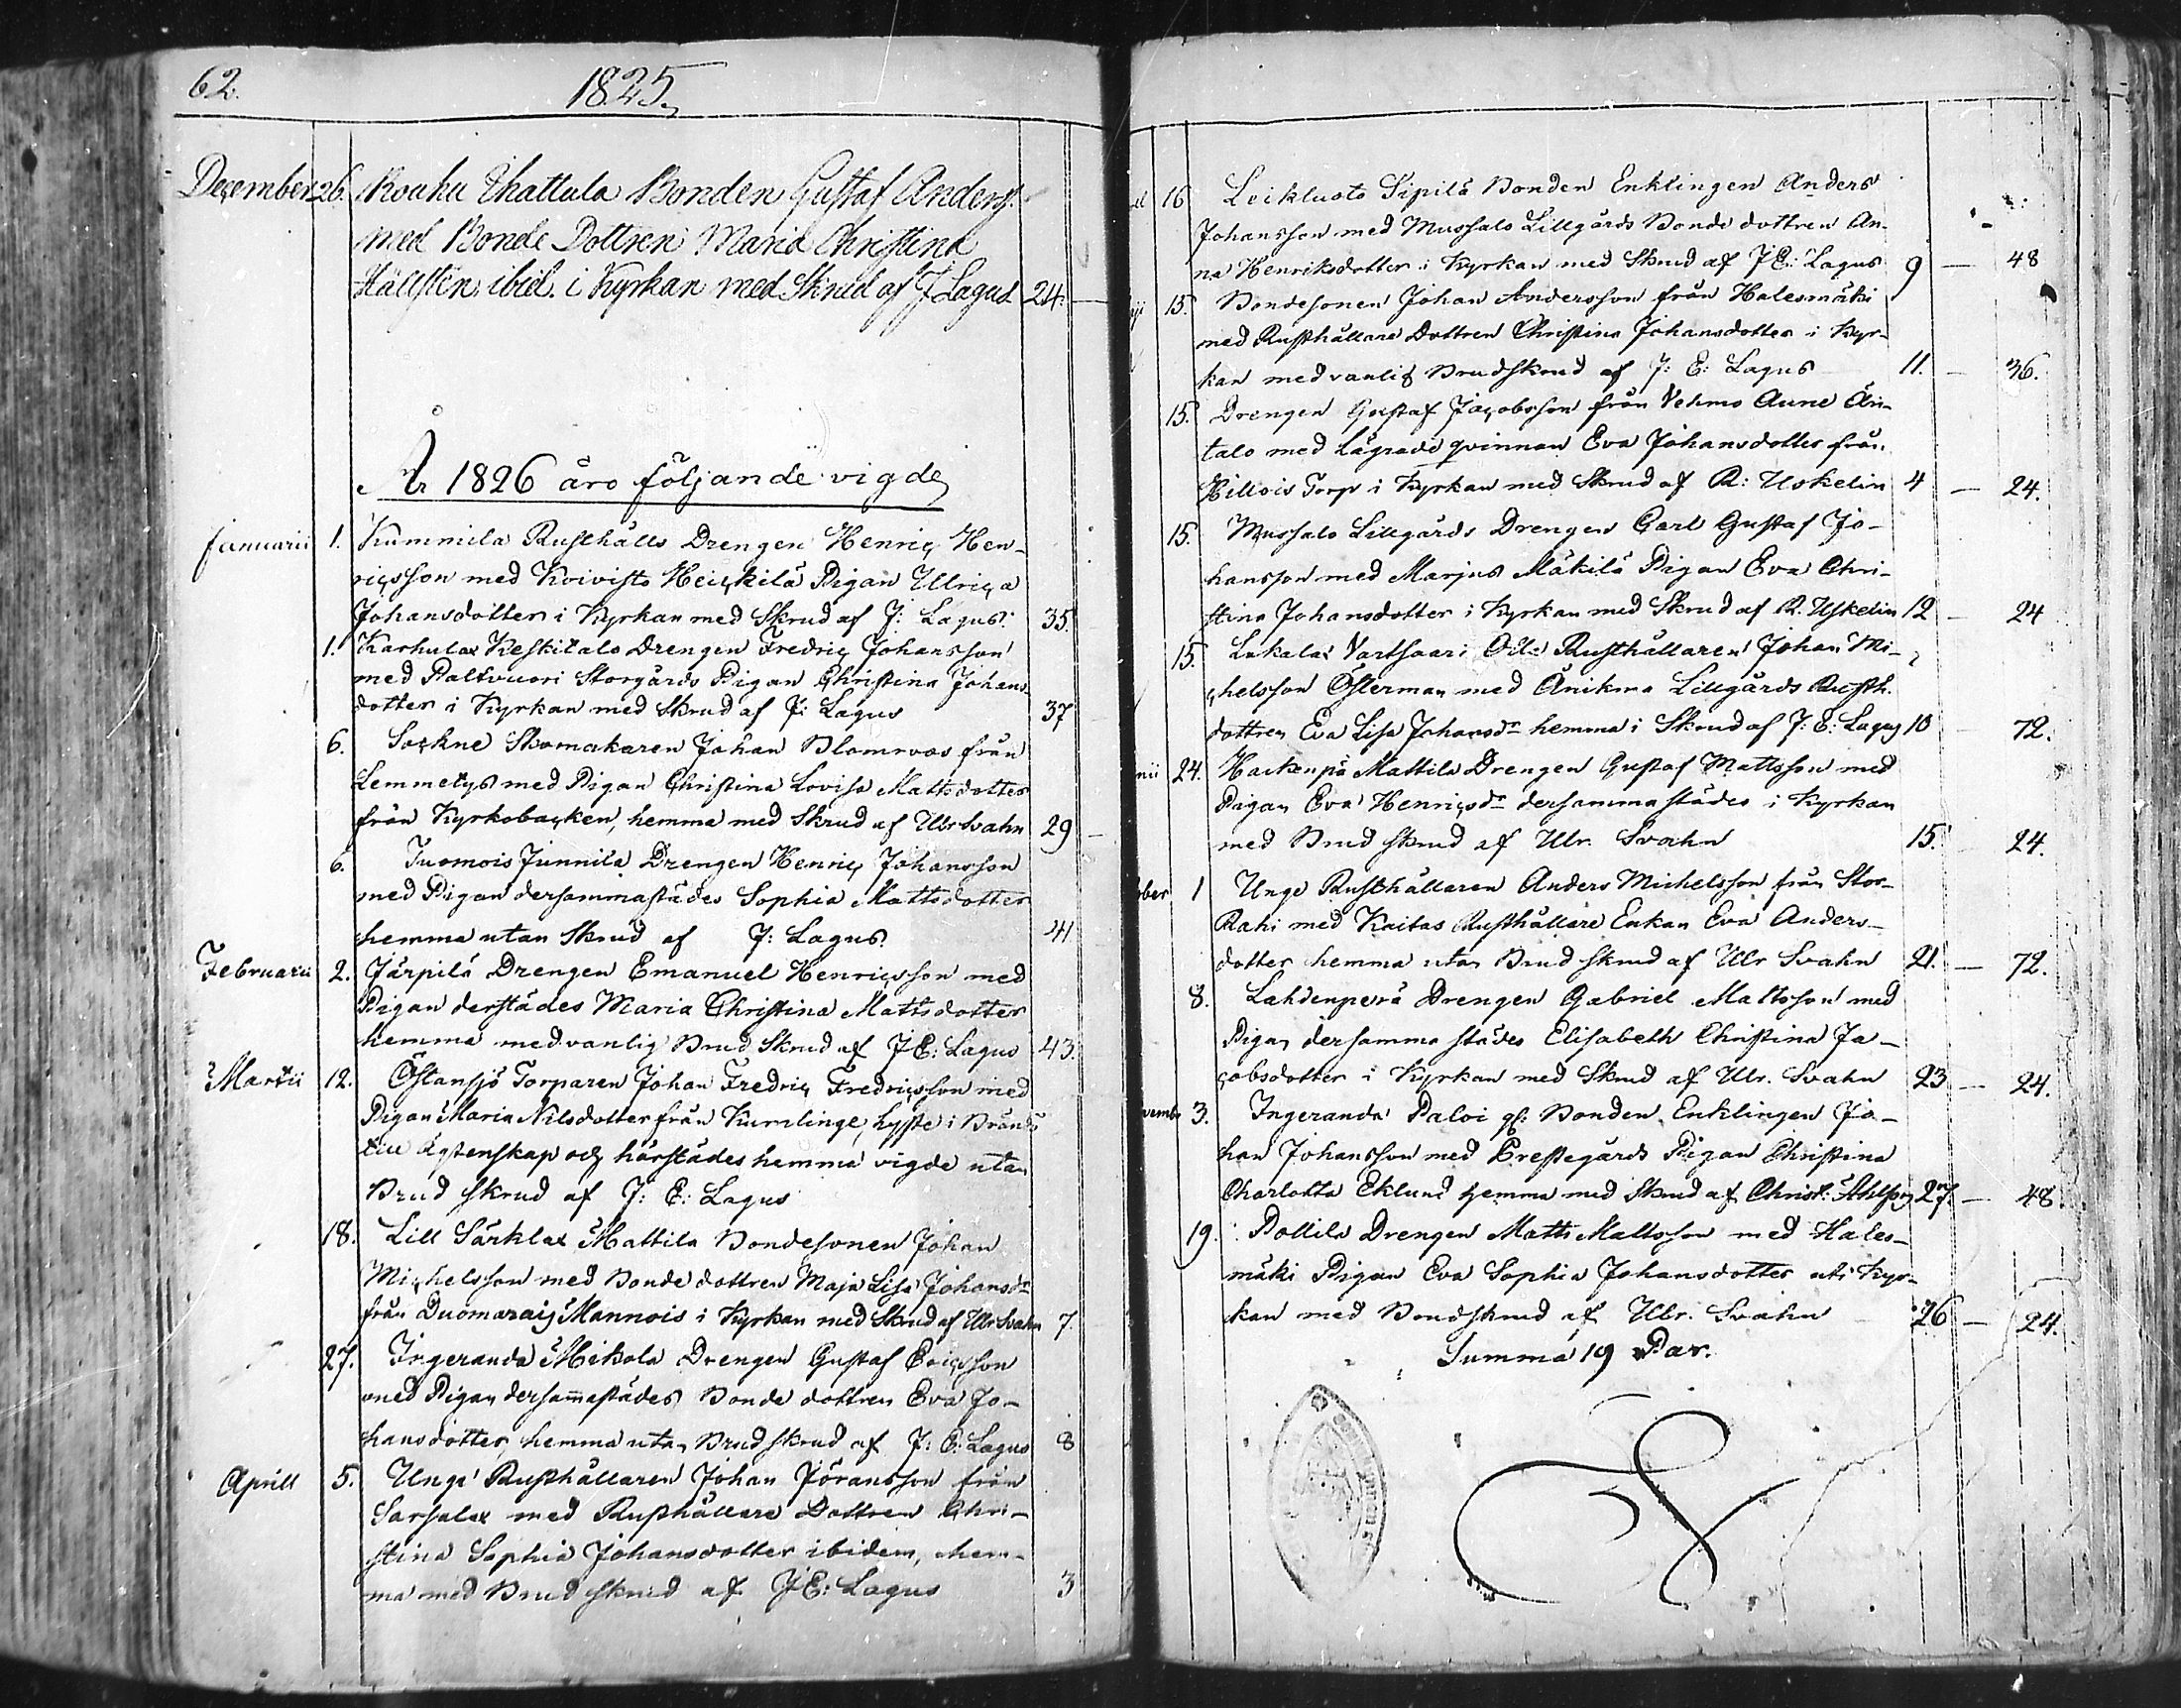 62.
1825.
December 26. Kouhu Uhattula Bonden Gustaf Anders.
med Bonde Dottren Maria Christina
Hällsten, ibid. i Kyrkan med Skrud af J Lagus 24.
År 1826 äro följande vigde
Januarii 1. Kummila Rusthålls Drengen Henric Hen-
ricsson med Koivisto Heickilä Pigan Ulrica
Johansdotter i Kyrkan med Skrud af J: Lagus. 35.
1. Karhulax Keskitalo Drengen Fredric Johansson
med Paltvuori Storgårds Pigan Christina Johans-
dotter i Kyrkan med Skrud af J: Lagus 37
6. Sockne Skomakaren Johan Blomroos från
Lemmetys med Pigan Christina Lovisa Mattsdotter
från Kyrkobacken, hemma med Skrud af Ulr Svahn 29 –
6. Tuomois Junnila Drengen Henric Johansson
med Pigan dersammastädes Sophia Mattsdotter
hemma utan Skrud af J: Lagus. 41
Februarii 2. Järpilä Drengen Emanuel Henricsson med
Pigan derstädes Maria Christina Mattsdotter
hemma med vanlig Brud Skrud af J E: Lagus 43.
Martii 12. Östansjö Torparen Johan Fredric Fredricsson med
Pigan Maria Nilsdotter från Kumlinge, lyste i Brändö
till Ägtenskap och härstädes hemma vigde utan
Brud skrud af J: E: Lagus
18. Lill Särklax Mattila Bondesonen Johan
Michelsson med Bonde dottren Maja Lisa Johansdr
från Duomaraig Mannois i Kyrkan med Skrud af Ulr Svahn 7.
27. Ingeranda Mikola Drengen Gustaf Ericsson
med Pigan dersam̄astädes Bonde dottren Eva Jo-
hansdotter hemma utan Brudskrud af J: E: Lagus 8
Aprill 5. Unge Rusthållaren Johan Jöransson från
Sarsalax med Rusthållare Dottren Chri-
stina Sophia Johansdotter ibidem, hem-
ma med Brudskrud af J E: Lagus 3
16 Leikluoto Sipilä Bonden Enklingen Anders
Johansson med Mussalo Lillgårds Bonde dottren An-
na Henriksdotter i Kyrkan med Skrud af J E: Lagus 9 – 48
15. Bondesonen Johan Andersson från Halesmäki
med Rusthållare Dottren Christina Johansdotter i Kyr-
kan med vanlig Brudskrud af J: E: Lagus 11. – 36.
15. Drengen Gustaf Jacobsson från Vehmo Aune Än-
talo med Lägrade qvinnan Eva Johansdotter från
Hillois Torp i Kyrkan med Skrud af R: Uskelin 4 – 24.
15. Mussalo Lillgårds Drengen Carl Gustaf Jo-
hansson med Marjus Mäkilä Pigan Eva Chri-
stina Johansdotter i Kyrkan med Skrud af R. Uskelin 12 – 24
15. Lukalax Vartsaari Rusthållaren Johan Mi-
chelsson Österman med Änikma Lillgårds Rusth.
dottren Eva Lisa Johansdr hemma i Skrud af J: E: Lagus 10 – 72.
24. Hackenpä Mattila Drengen Gustaf Mattsson med
Pigan Eva Henricsdr dersammastädes i Kyrkan
med Brud skrud af Ulr. Svahn 15. 24.
ober 1 Unge Rusthållaren Anders Michelsson från Stor-
Rahi med Kaitas Rusthållare Enkan Eva Anders-
dotter hemma utan Brud skrud af Ulr Svahn 21. – 72.
8. Lahdenperä Drengen Gabriel Mattsson med
Pigan dersamma städes Elisabeth Christina Ja-
cobsdotter i Kyrkan med Skrud af Ulr. Svahn 23 – 24.
vembr 3. Ingeranda Paloi Bonden Enklingen Jo-
han Johansson med Prestegårds Pigan Christina
Charlotta Eklund hemma med Skrud af Christ: Åhlfors 27. – 48.
19. Pollila Drengen Matts Mattsson med Hales-
mäki Pigan Eva Sophia Johansdotter uti Kyr-
kan med Brudskrud af Ulr. Svahn 26 – 24.
Summa 19 Par.